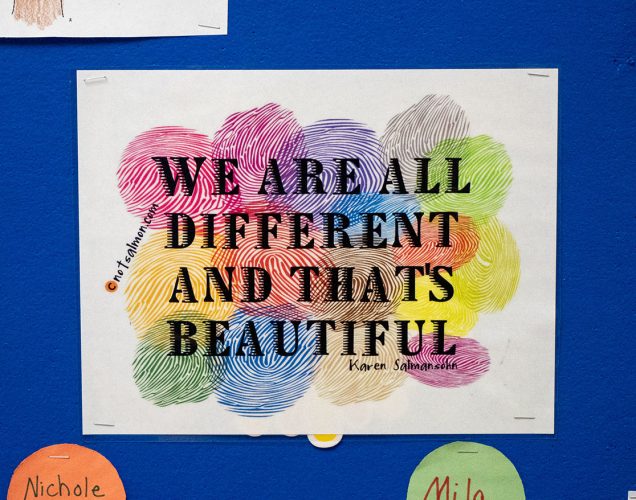 WE ARE ALL
DIFFERENT
AND THAT'S
BEAUTIFUL
Karen Salmansohn
©notsalmon.com
Nichole
Mila